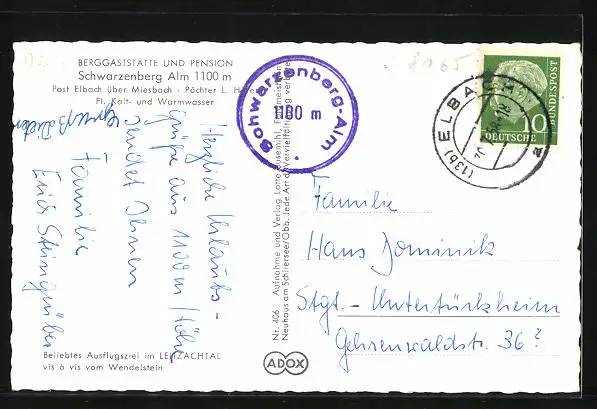 BERGGASTSTÄTTE UND PENSION
Schwarzenberg Alm 1100 m
Post Elbach über Miesbach · Pächter L.
Fl. Kalt- und Warmwasser
Herzliche Urlaubs-
grüße aus 1100 m Höhe
sendet Ihnen
Familie
Erich
Beliebtes Ausflugsziel im LEITZACHTAL
vis à vis vom Wendelstein
Schwarzenberg-Alm
1100 m
Nr. 406 Aufnahme und Verlag Lotte
Neuhaus am Schliersee/Obb. Jede Art d. Vervielfältigung
ADOX
(13b) ELBACH
DEUTSCHE
BUNDESPOST
10
Familie
Hans Dominik
Stgt.-Untertürkheim
Gehrenwaldstr. 36?